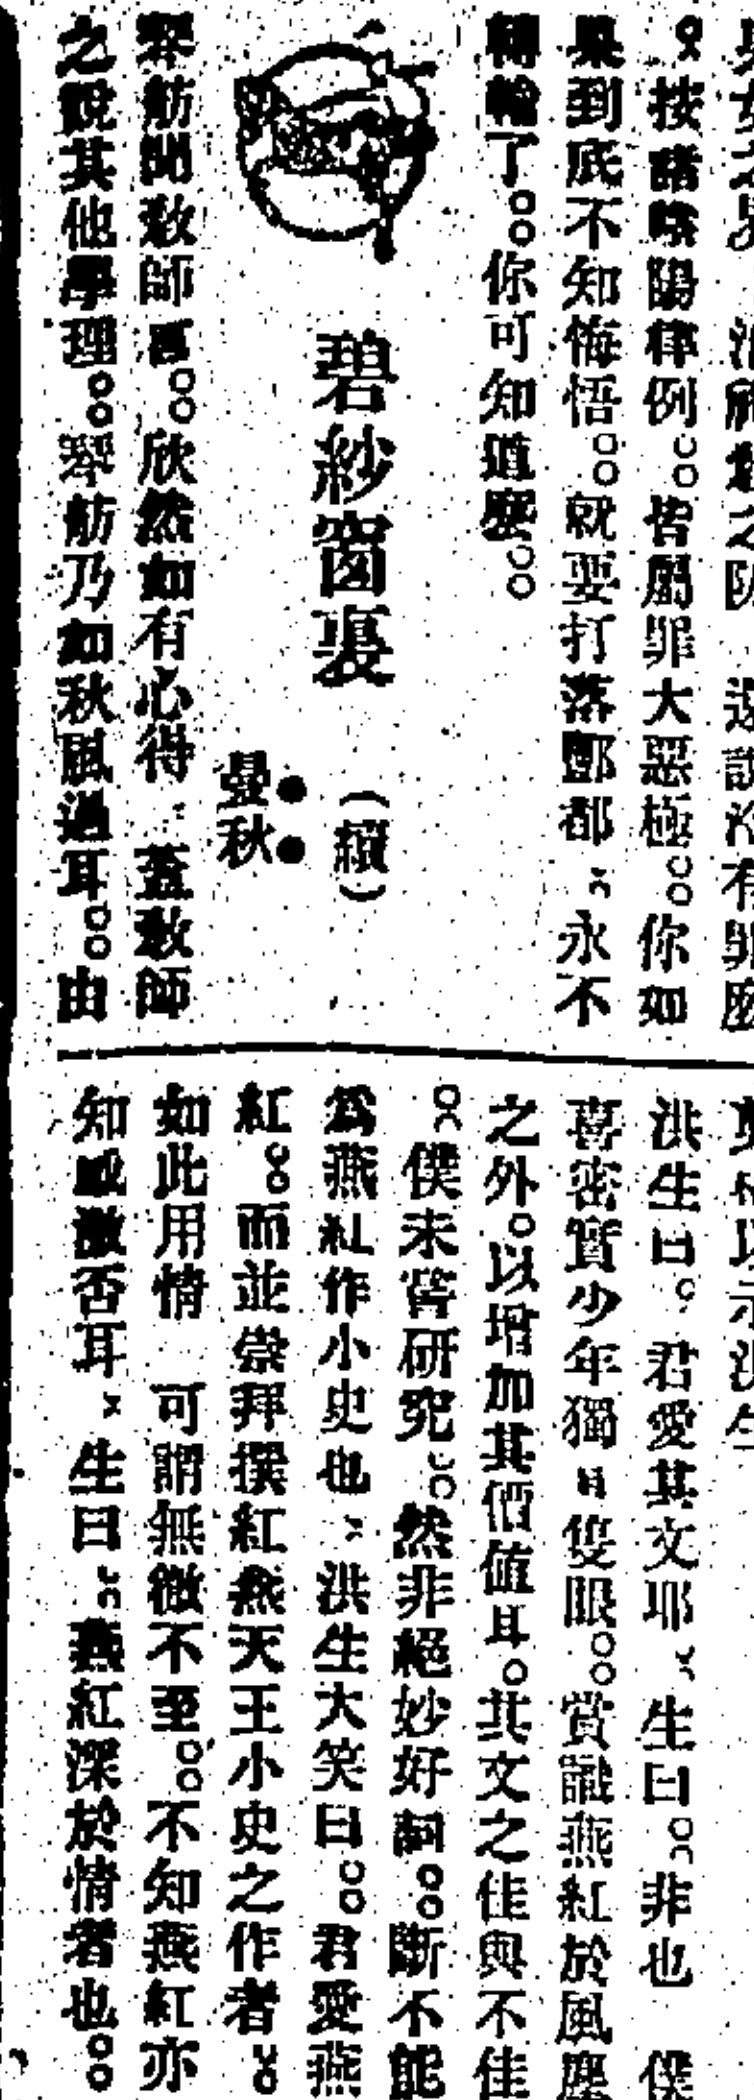 之界
還說沒有罪麽
按諸陰陽律例。。皆屬罪大惡極。。你如
果到底不知悔悟。。就要打落酆都。永不
轉輪了。。你可知道麽。。
碧紗窗裏
(續)
曇秋
琴舫聞敎師言。。欣然如有心得。蓋敎師
之說其他學理。。琴舫乃如秋風過耳。。由
以示洪生
洪生曰。君愛其文耶、生曰。。非也 僕
喜密實少年獨具隻眼。。賞識燕紅於風塵
之外。以增加其價值耳。其文之佳與不佳
。。僕未嘗研究。。然非絕妙好詞。。斷不能
爲燕紅作小史也、洪生大笑曰。。君愛燕
紅。。而並崇拜撰紅燕天王小史之作者。。
如此用情 可謂無微不至。。不知燕紅亦
知感激否耳、生曰。。燕紅深於情者也。。